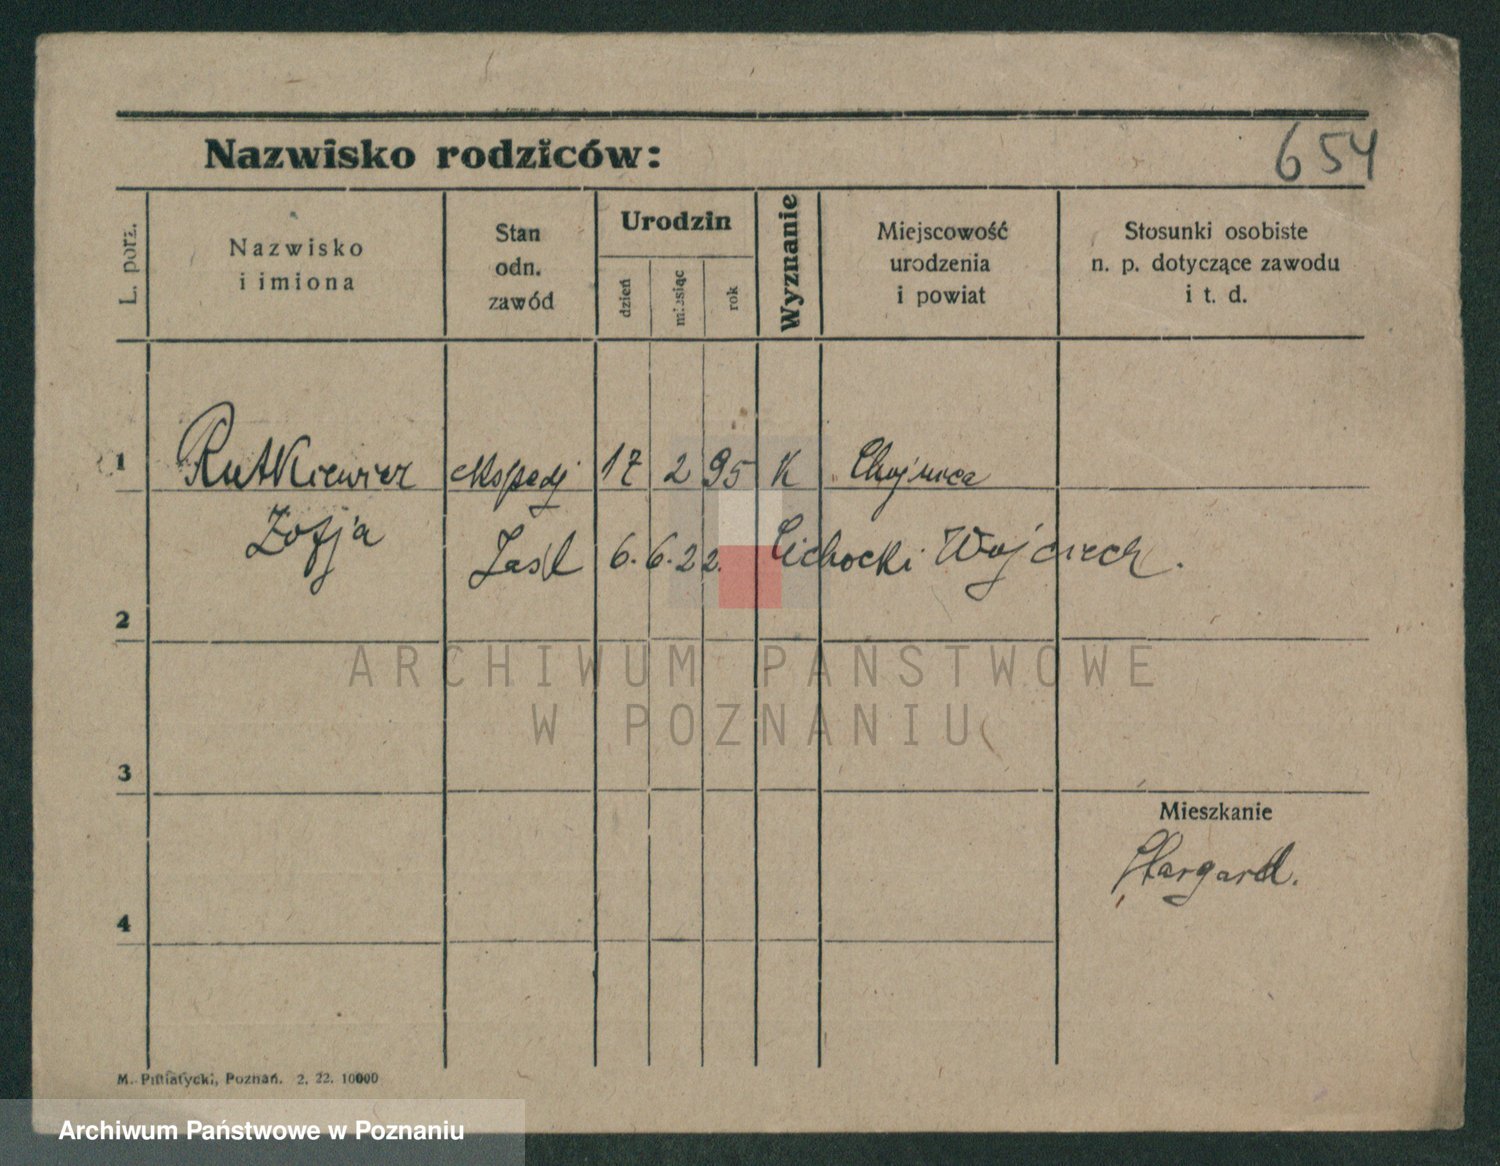 654
Nazwisko rodziców:
L. porz.
Nazwisko
i imiona
Stan
odn.
zawód
Urodzin
dzień
miesiąc
rok
Wyznanie
Miejscowość
urodzenia
i powiat
Stosunki osobiste
n. p. dotyczące zawodu
i t. d.
1 Rutkiewicz ekspedj 17 2 95 K Chojnice
Zofja
Zaśl 6. 6. 22. Cichocki Wojciech.
2
ARCHIWUM PAŃSTWOWE
W POZNANIU
3
Mieszkanie
Stargard.
4
M. Pilliatycki, Poznań. 2. 22. 10000
Archiwum Państwowe w Poznaniu